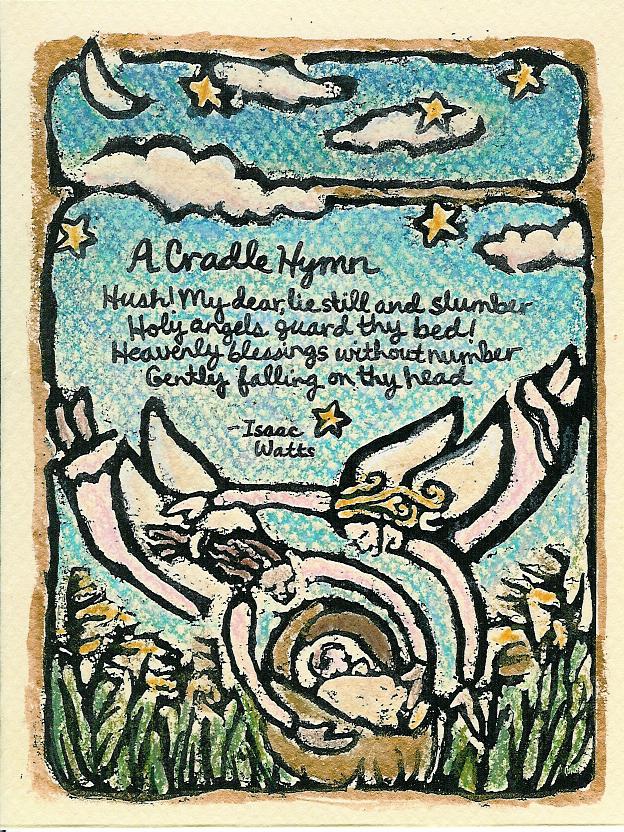 A Cradle Hymn
Hush! My dear, lie still and slumber
Holy angels guard thy bed!
Heavenly blessings without number
Gently falling on thy head
- Isaac
Watts